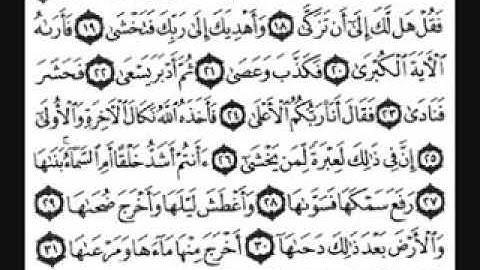 فَقُلْ هَل لَّكَ إِلَىٰٓ أَن تَزَكَّىٰ ١٨ وَأَهْدِيَكَ إِلَىٰ رَبِّكَ فَتَخْشَىٰ ١٩ فَأَرَىٰهُ
ٱلْأٓيَةَ ٱلْكُبْرَىٰ ٢٠ فَكَذَّبَ وَعَصَىٰ ٢١ ثُمَّ أَدْبَرَ يَسْعَىٰ ٢٢ فَحَشَرَ
فَنَادَىٰ ٢٣ فَقَالَ أَنَا۠ رَبُّكُمُ ٱلْأَعْلَىٰ ٢٤ فَأَخَذَهُ ٱللَّهُ نَكَالَ ٱلْأٓخِرَةِ وَٱلْأُولَىٰٓ
٢٥ إِنَّ فِى ذَٰلِكَ لَعِبْرَةً لِّمَن يَخْشَىٰٓ ٢٦ ءَأَنتُمْ أَشَدُّ خَلْقًا أَمِ ٱلسَّمَآءُ ۚ بَنَىٰهَا
٢٧ رَفَعَ سَمْكَهَا فَسَوَّىٰهَا ٢٨ وَأَغْطَشَ لَيْلَهَا وَأَخْرَجَ ضُحَىٰهَا ٢٩
وَٱلْأَرْضَ بَعْدَ ذَٰلِكَ دَحَىٰهَآ ٣٠ أَخْرَجَ مِنْهَا مَآءَهَا وَمَرْعَىٰهَا ٣١